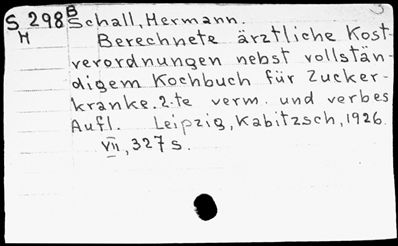 S 298 B Schall, Hermann. 3
H Berechnete ärztliche Kost-
verordnungen nebst vollstän-
digem Kochbuch für Zucker-
kranke. 2-te verm. und verbes
Aufl. Leipzig, Kabitzsch, 1926.
VII, 327 s.